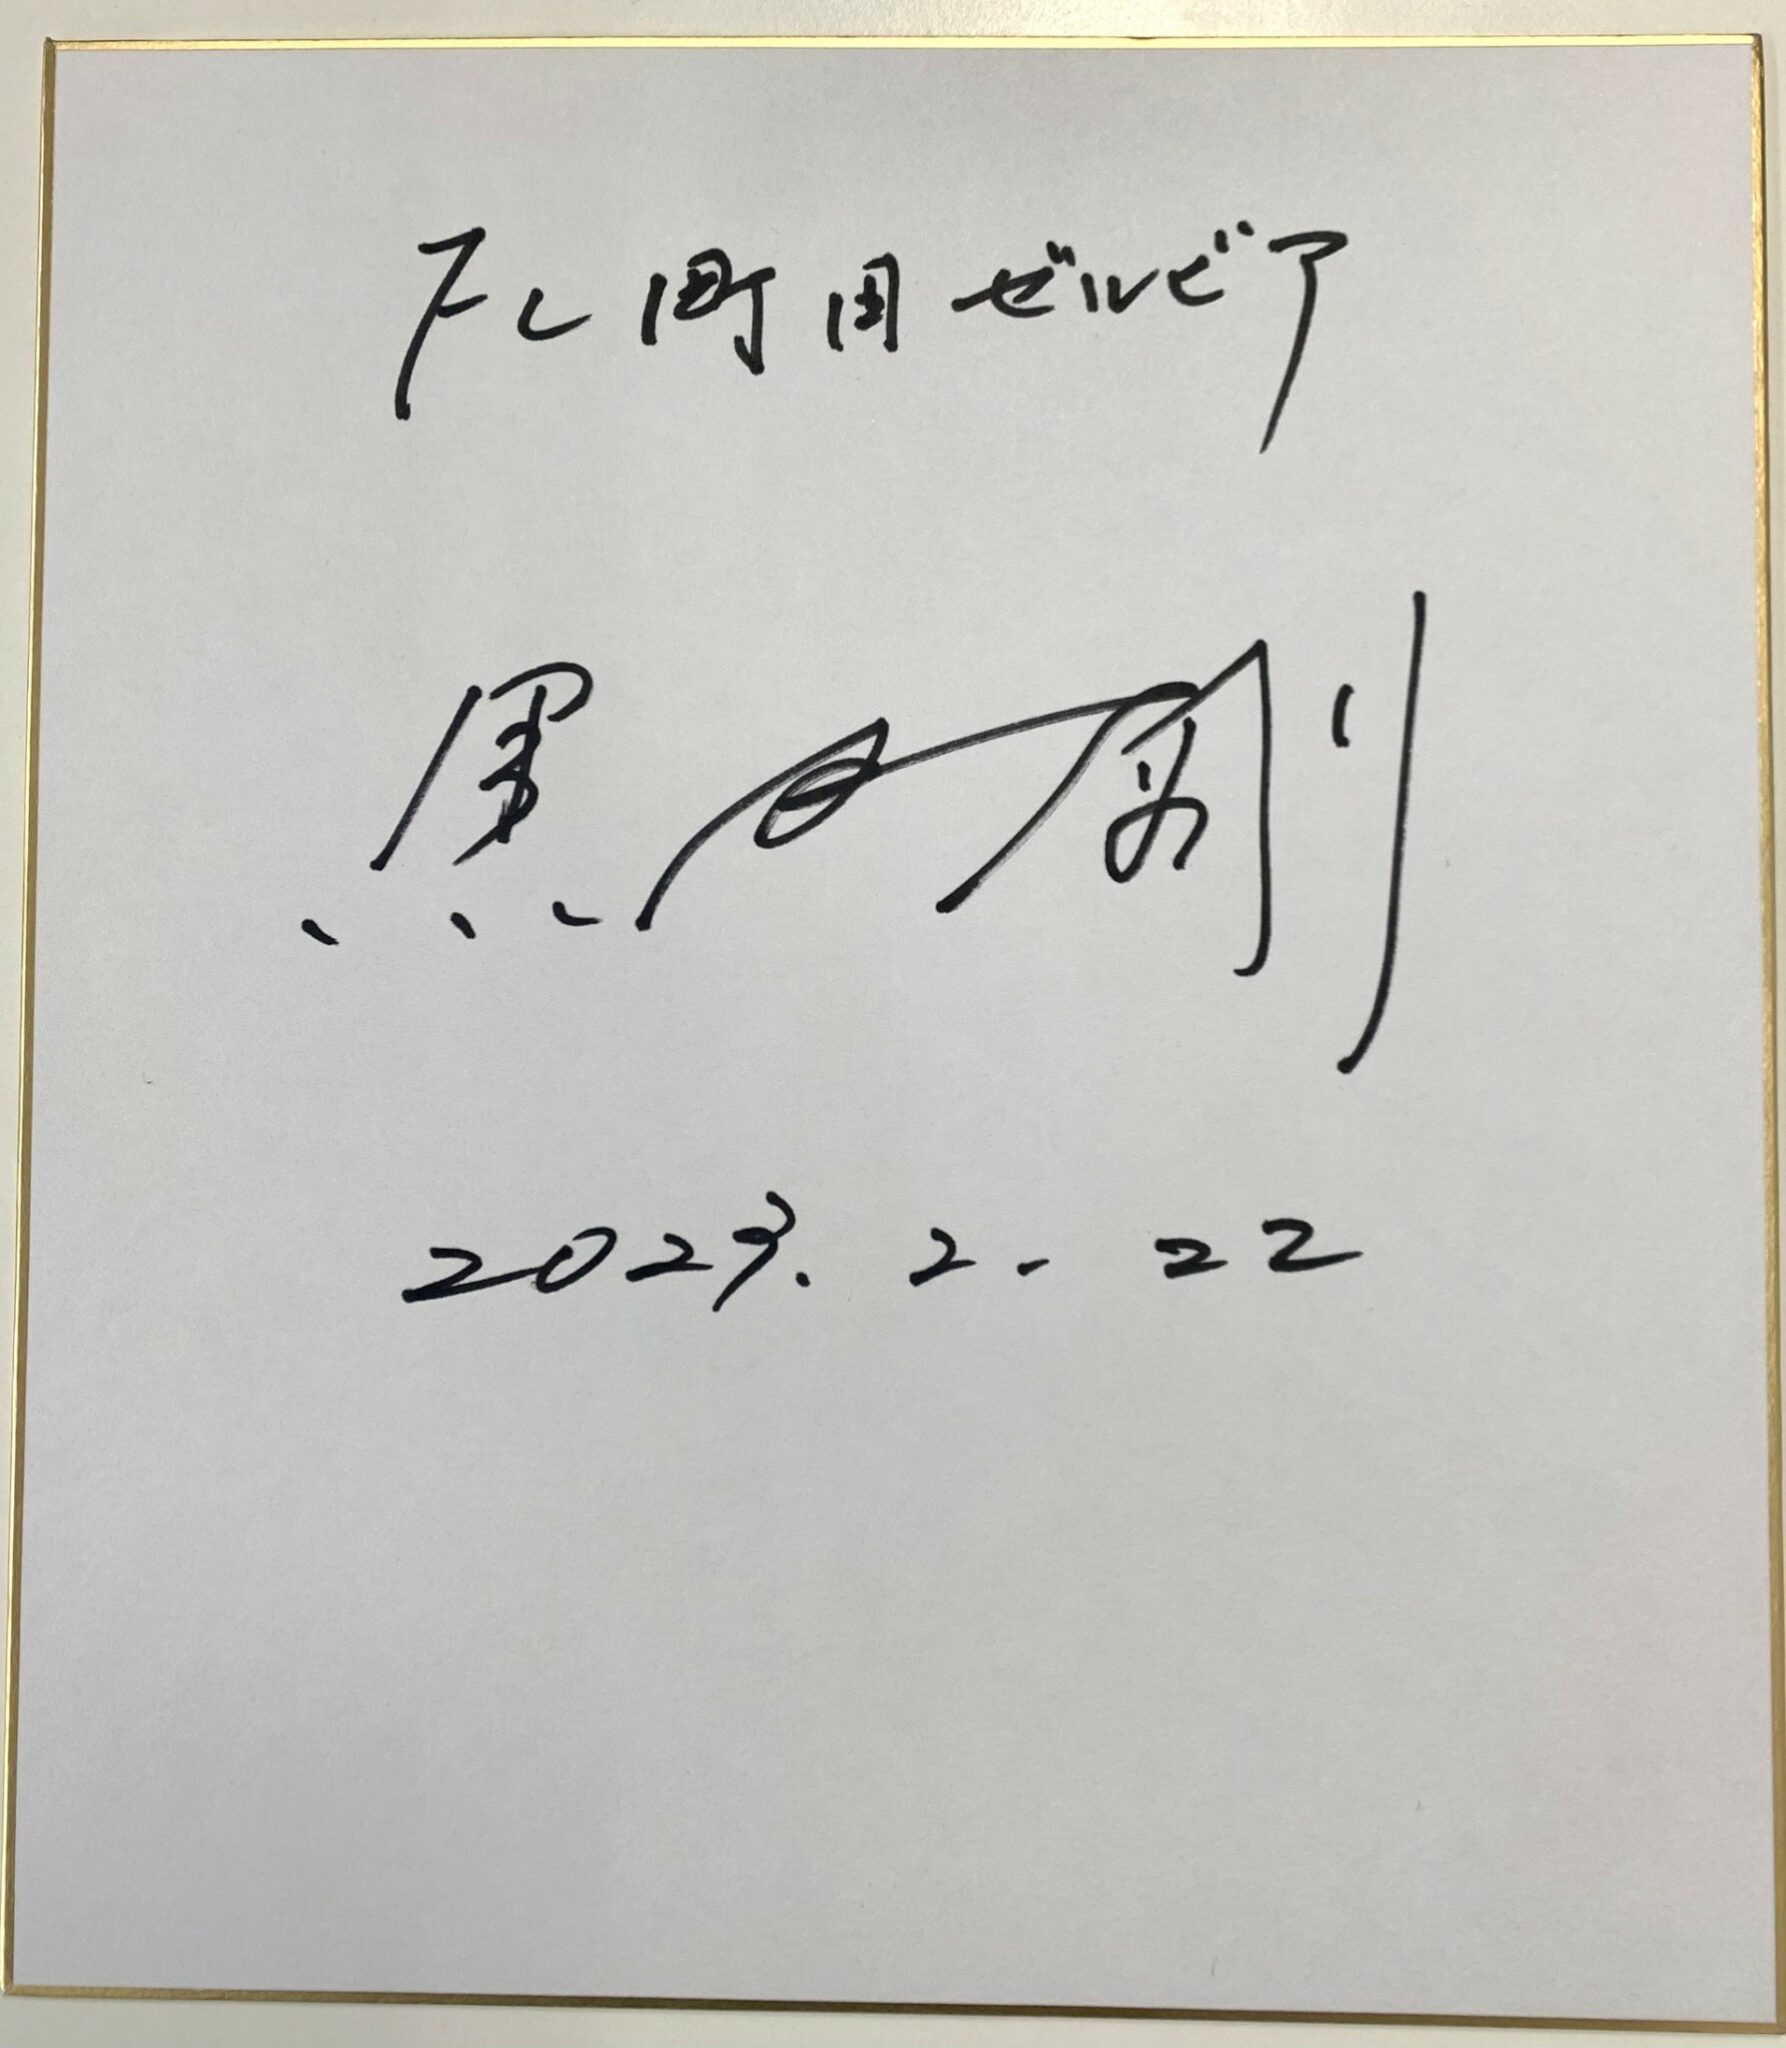 FC町田ゼルビア
黒田剛
2023.2.22